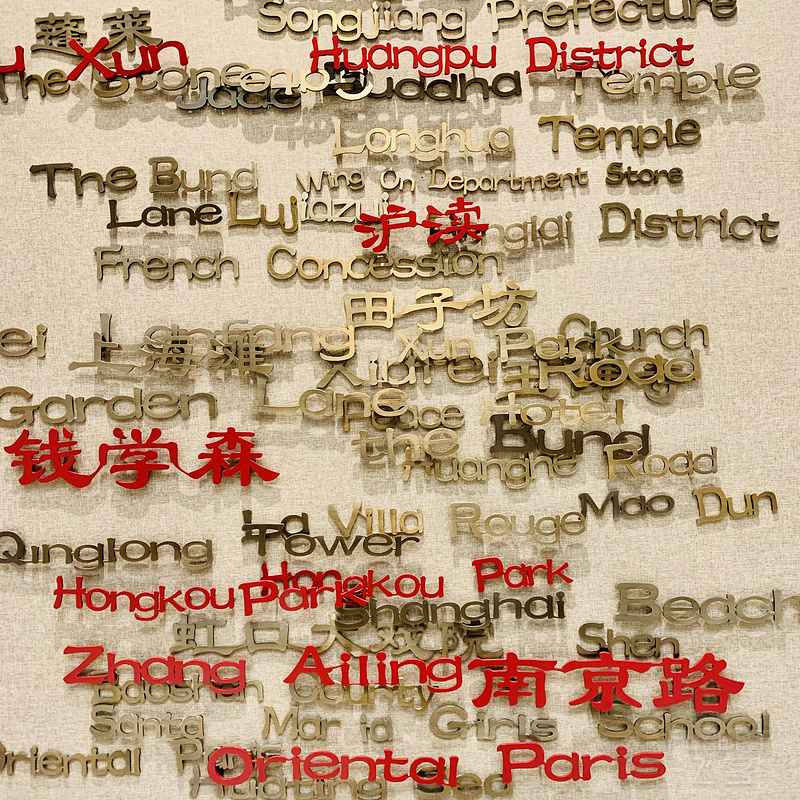 蓬莱 Songjiang Prefecture
Xun Huangpu District
The Stone Gate Buddha Temple
Jade
Longhua Temple
The Bund Wing On Department Store
Lane Lujiazui District
沪渎
French Concession
田子坊
Lanfang Church
上海滩 Xun Park
Road
Garden Lane Peace Hotel
the Bund
钱学森 Huanghe Road
Mao Dun
La Villa Rouge
Qinglong Tower
Hongkou Park
Hongkou Park
Shanghai Beach
虹口大戏院 Shen
Zhang Ailing 南京路
Baoshan County
Santa Maria Girls School
Oriental Paris
Oriental Paris